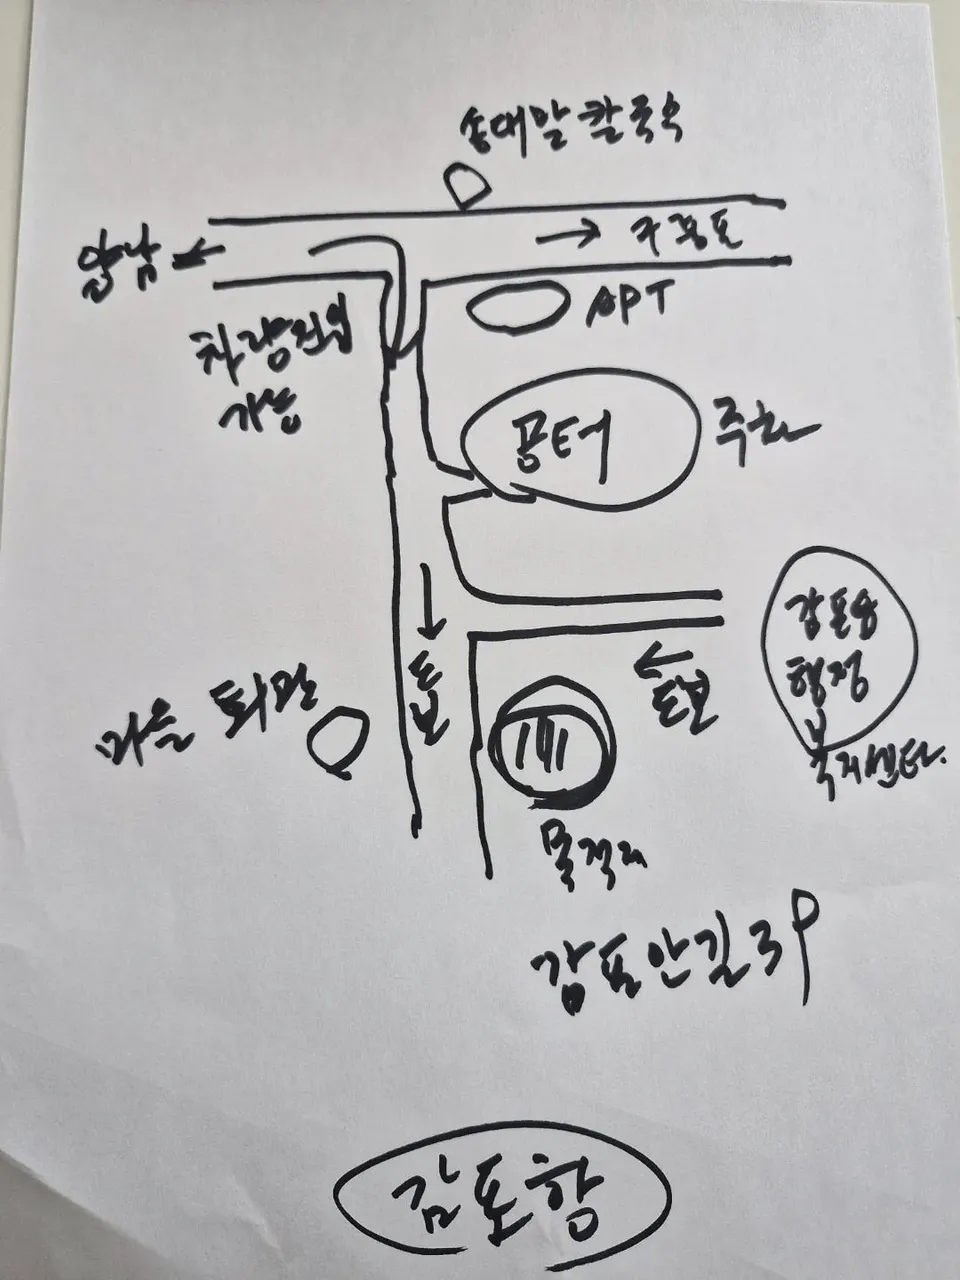 송대말칼국수
→ 구룡포
←
APT
차량진입
가능
공터
주차
↓
도보
←
도보
감포읍
행정
복지센타
마을 회관
목적지
감포안길 39
감포항